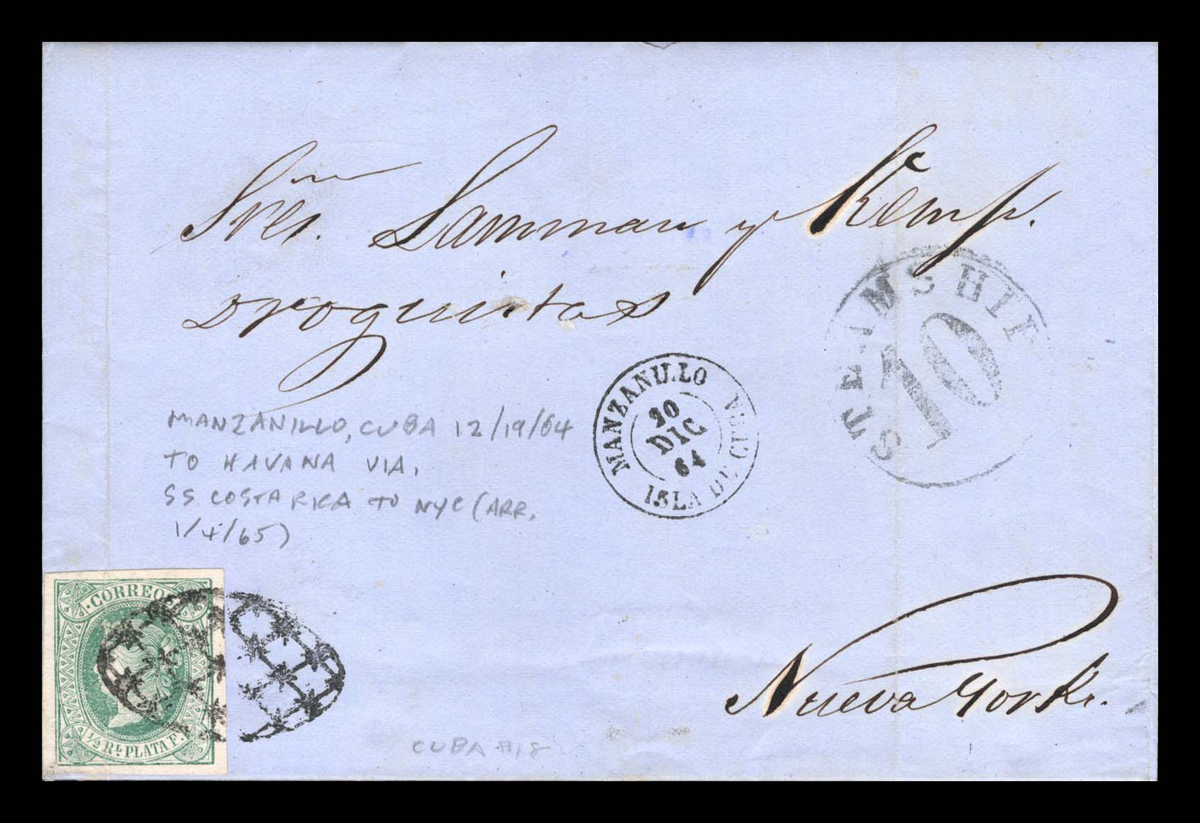 Sres. Lanman y Kemp.
Droguistas
STEAMSHIP
10
MANZANILLO
20
DIC
64
ISLA DE CUBA
MANZANILLO, CUBA 12/19/64
TO HAVANA VIA.
SS COSTA RICA TO NYC (ARR.
1/4/65)
CORREOS
½ Rl. PLATA F.
Nueva York.
CUBA #18